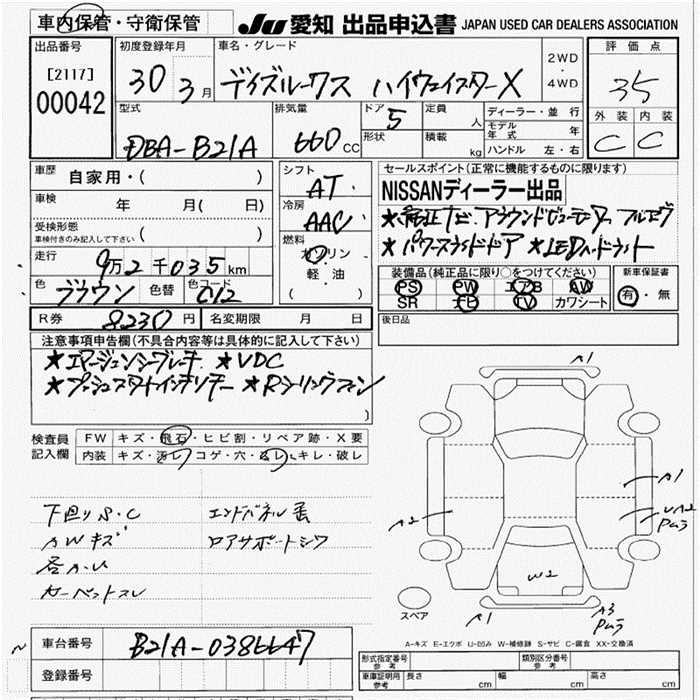 車内保管・守衛保管
JU 愛知 出品申込書 JAPAN USED CAR DEALERS ASSOCIATION
出品番号
[2117]
00042
初度登録年月
30 3月
車名・グレード
デイズルークス ハイウェイスターX
2WD
・
4WD
評価点
35
外装 内装
C C
型式
DBA-B21A
排気量
660 CC
ドア 5
形状
定員 人
積載 kg
ディーラー・並行
モデル年式 年
ハンドル 左・右
車歴 自家用・( )
車検 年 月( 日)
受検形態
車検付きのみ記入して下さい ( )
走行 9万2千035km
色 ブラウン 色替 色コード C12
シフト
AT
冷房
AAC
燃料
ガソリン
軽・油
( )
セールスポイント(正常に機能するものに限ります)
NISSANディーラー出品
★純正ナビ アラウンドビューモニター フルセグ
★パワースライドドア ★LEDヘッドライト
装備品(純正品に限り○をつけてください)
PS PW エアB AW
SR ナビ TV カワシート
新車保証書
有・無
R券 8230円 名変期限 月 日
後日品
注意事項申告欄(不具合内容等は具体的に記入して下さい)
★エマージェンシーブレーキ ★VDC
★プッシュスタートインテリキー ★Rシーリングファン
)
検査員
記入欄
FW キズ・飛石・ヒビ割・リペア跡・X要
内装 キズ・汚レ・コゲ・穴・スレ・キレ・破レ
下廻りS・C エンドパネル歪
AWキズ ロアサポートシワ
カーペットスレ
A1
A2
A1
UA2
Pムラ
W2
A1
A3
Pムラ
スペア
A-キズ E-エクボ U-凹み W-補修跡 S-サビ C-腐食 XX-交換済
車台番号 B21A-0386647
登録番号
形式指定番号
参考
類別区分番号
参考
車庫証明用
参考
長さ cm 幅 cm 高さ cm